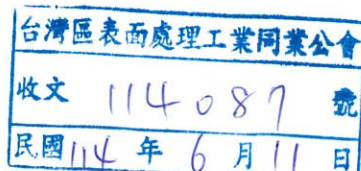 台灣區表面處理工業同業公會
收文 114087 號
民國 114 年 6 月 11 日